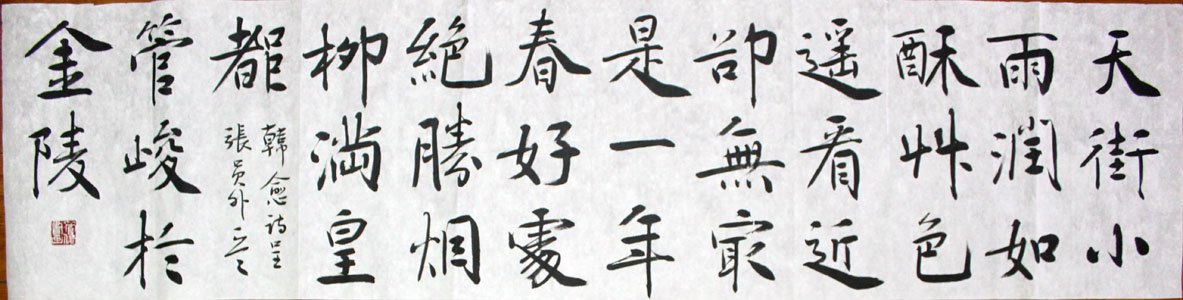 天街小
雨潤如
酥艸色
遥看近
卻無冣
是一年
春好處
絕勝烟
柳滿皇
都
韓愈詩呈
張員外
管峻於
金陵